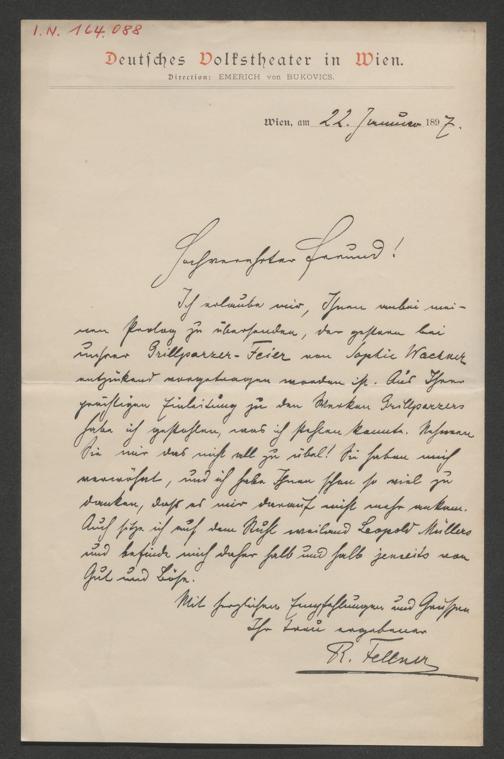 I.N. 164.088
Deutsches Volkstheater in Wien.
Direction: EMERICH von BUKOVICS.
Wien, am 22. Januar 1897.
Hochverehrter Freund!
Ich erlaube mir, Ihnen anbei mei-
nen Prolog zu übersenden, der gestern bei
unserer Grillparzer-Feier von Sophie Wachner
entzückend vorgetragen worden ist. Aus Ihrer
prächtigen Einleitung zu den Werken Grillparzers
habe ich gestohlen, was ich stehlen konnte. Nehmen
Sie mir das nicht all zu übel! Sie haben mich
verwöhnt, und ich habe Ihnen schon so viel zu
danken, daß es mir darauf nicht mehr ankam.
Auch sitze ich auf dem Stuhl weiland Leopold Müllers
und befinde mich daher halb und halb jenseits von
Gut und Böse.
Mit herzlichen Empfehlungen und Grüssen
Ihr treu ergebener
R. Fellner